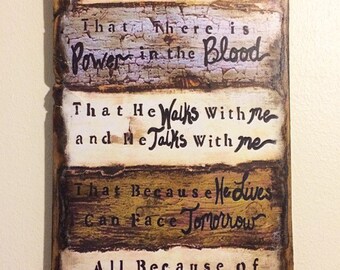 That There is
Power in the Blood
That He Walks With me
and He Talks With me
That Because He Lives
I Can Face Tomorrow
All Because of